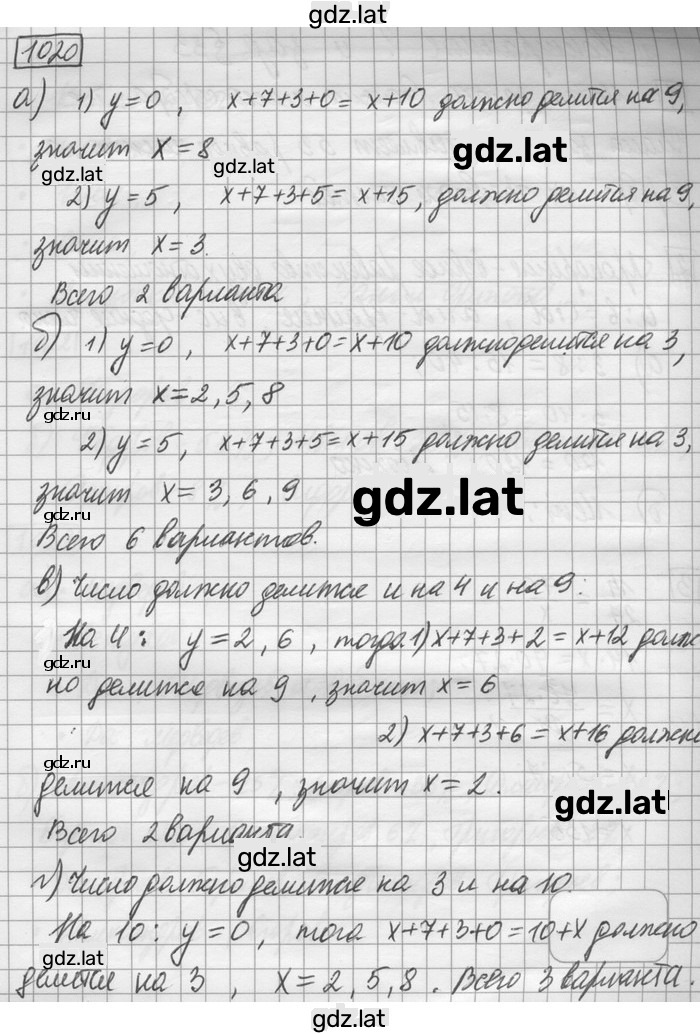 gdz.lat
1020
а) 1) y=0 , x+7+3+0= x+10 должно делится на 9,
gdz.lat
значит x=8
gdz.lat
2) y=5 , x+7+3+5= x+15, должно делится на 9,
gdz.lat
значит x=3.
Всего 2 варианта
б) 1) y=0 , x+7+3+0=x+10 должно делится на 3,
значит x=2,5,8
gdz.ru
2) y=5 , x+7+3+5=x+15 должно делится на 3,
значит x=3,6,9
gdz.lat
gdz.ru
Всего 6 вариантов.
в) Число должно делится и на 4 и на 9:
На 4: y=2,6 , тогда 1) x+7+3+2=x+12 долж
gdz.lat
но делится на 9 , значит x=6
2) x+7+3+6=x+16 должно
gdz.ru
делится на 9 , значит x=2.
gdz.lat
Всего 2 варианта.
gdz.lat
г) Число должно делится на 3 и на 10.
На 10: y=0, тога x+7+3+0=10+x должно
gdz.ru
делится на 3 , x=2,5,8 . Всего 3 варианта.
gdz.lat